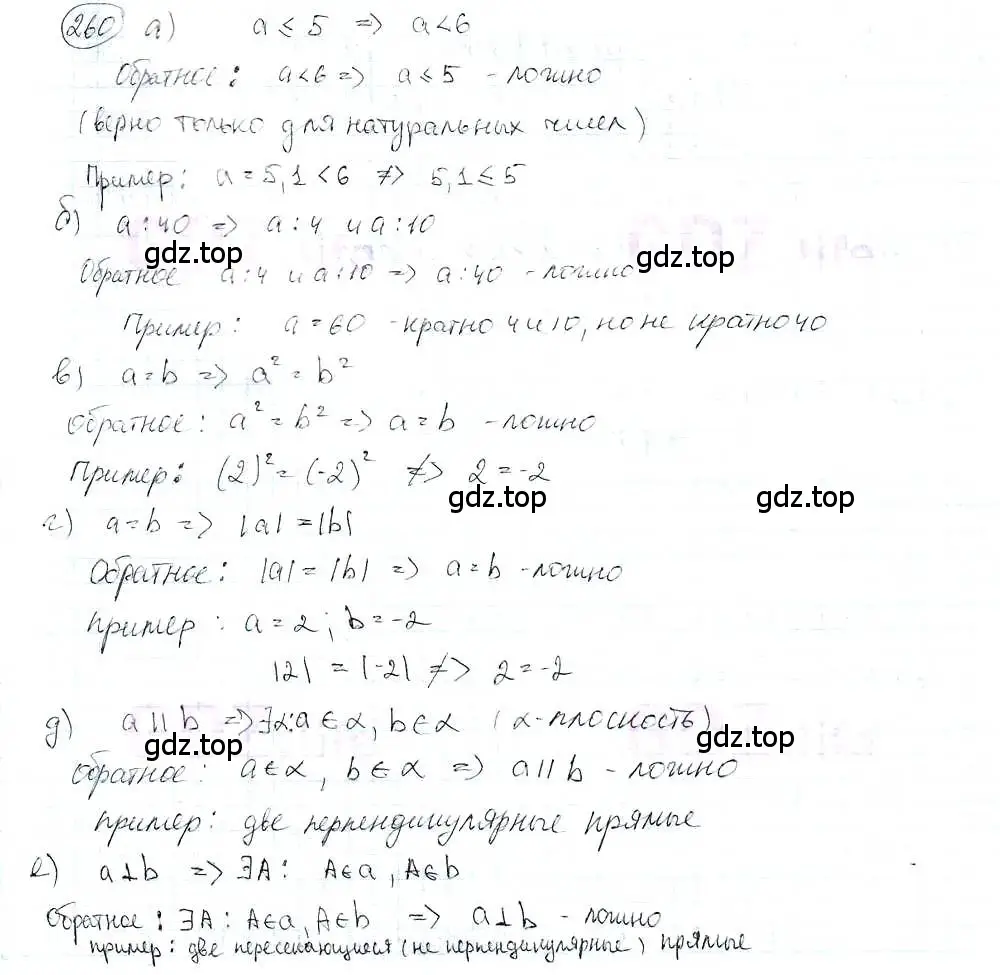 260 а) a ≤ 5 => a < 6
Обратное: a<6 => a ≤ 5 - ложно
(верно только для натуральных чисел)
Пример: a = 5,1 < 6 ≠> 5,1 ≤ 5
б) a : 40 => a : 4 и a : 10
gdz.top gdz.top
Обратное a : 4 и a : 10 => a : 40 - ложно
Пример: a = 60 - кратно 4 и 10, но не кратно 40
в) a = b => a² = b²
Обратное: a² = b² => a = b - ложно
Пример: (2)² = (-2)² ≠> 2 = -2
gdz.top gdz.top
г) a = b => |a| = |b|
Обратное: |a| = |b| => a = b - ложно
пример: a = 2; b = -2
|2| = |-2| ≠> 2 = -2
д) a || b => ∃α: a ∈ α, b ∈ α (α - плоскость)
gdz.top gdz.top
Обратное: a ∈ α, b ∈ α => a || b - ложно
пример: две перпендикулярные прямые
е) a ⊥ b => ∃A: A ∈ a, A ∈ b
Обратное: ∃A: A ∈ a, A ∈ b => a ⊥ b - ложно
пример: две пересекающиеся (не перпендикулярные) прямые